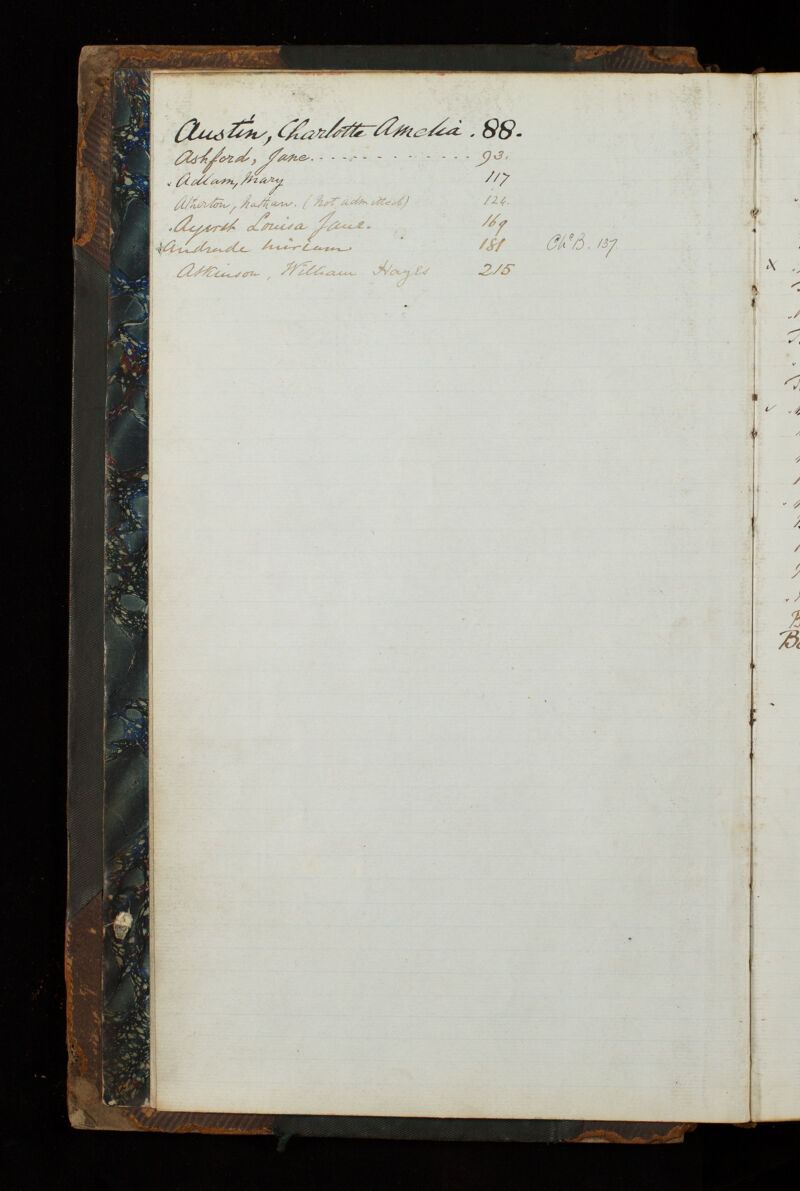 Austin, Charlotte Amelia . 88.
Ashford, Jane. . - - - - - - - - - - - 93.
Adlam, Mary 117
Atherton, Nathan. (Not admitted) 124.
Louisa Jane. 169
Andrade Miriam 181 Chº B. 137
Atkinson, William Hayes 215